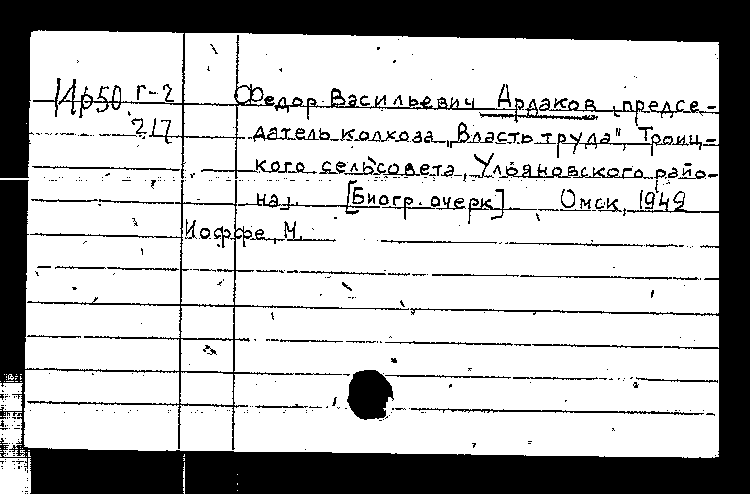 Ир50 г-2
217
Федор Васильевич Ардаков, предсе-
датель колхоза „Власть труда", Троиц-
кого сельсовета, Ульяновского райо-
на. [Биогр. очерк]. Омск, 1949
Иоффе, М.